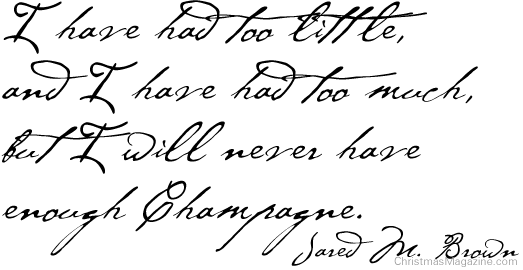 I have had too little,
and I have had too much,
but I will never have
enough Champagne.
Jared M. Brown
ChristmasMagazine.com